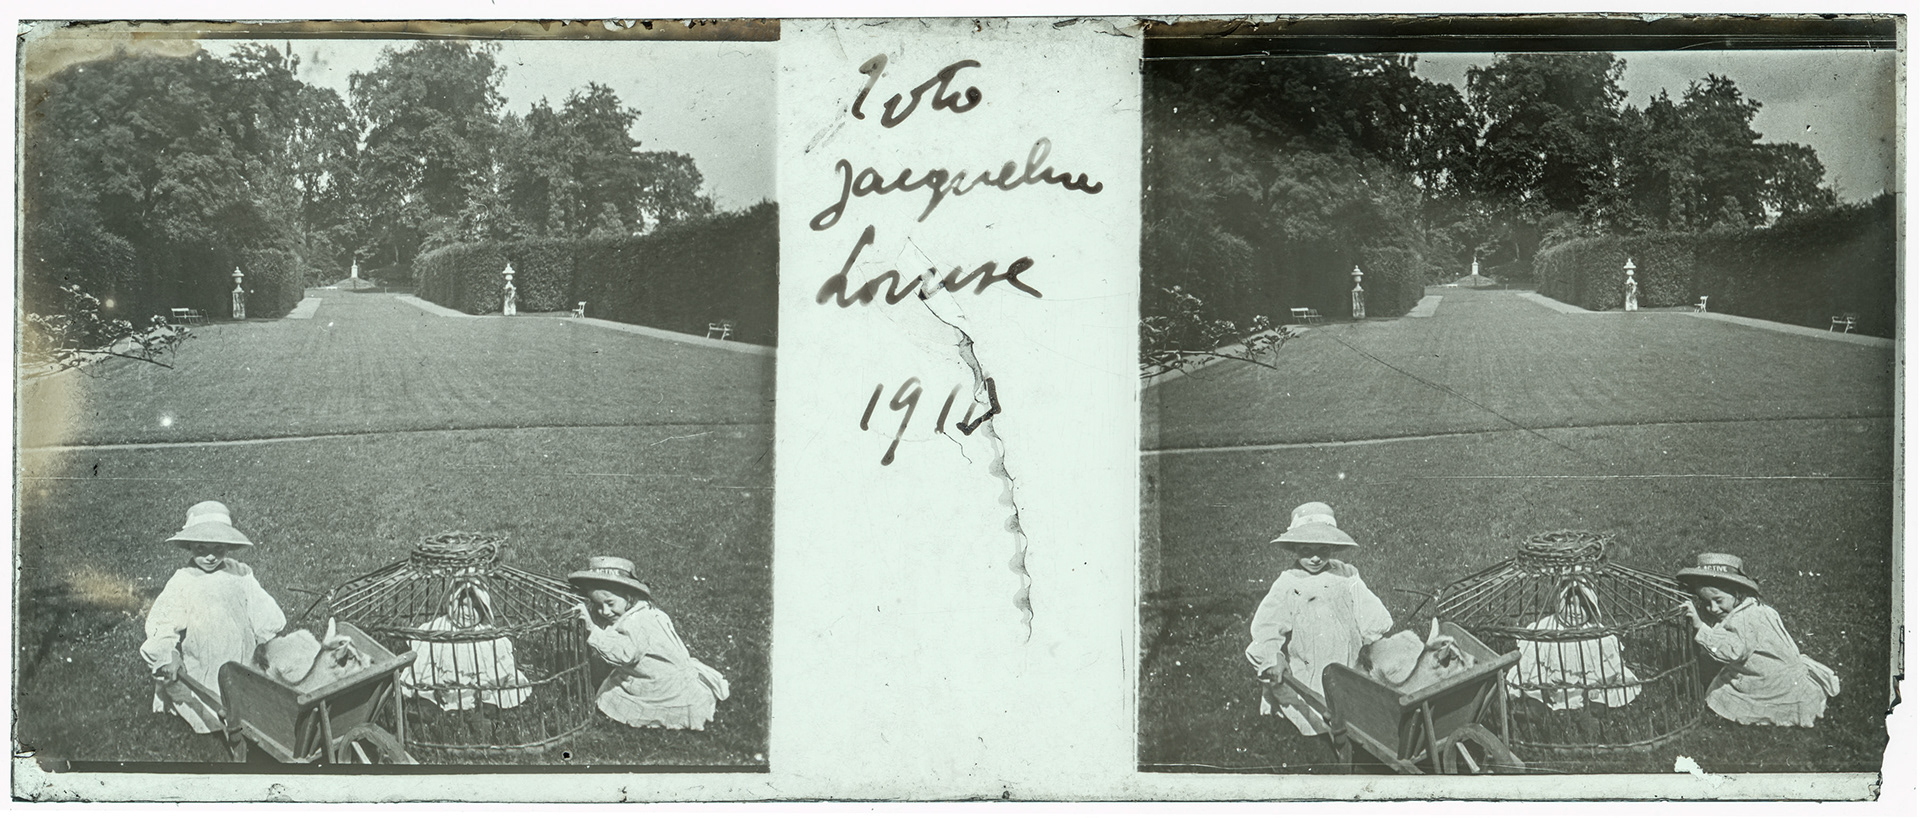 Toto
Jacqueline
Louise
1910
ACTIVE